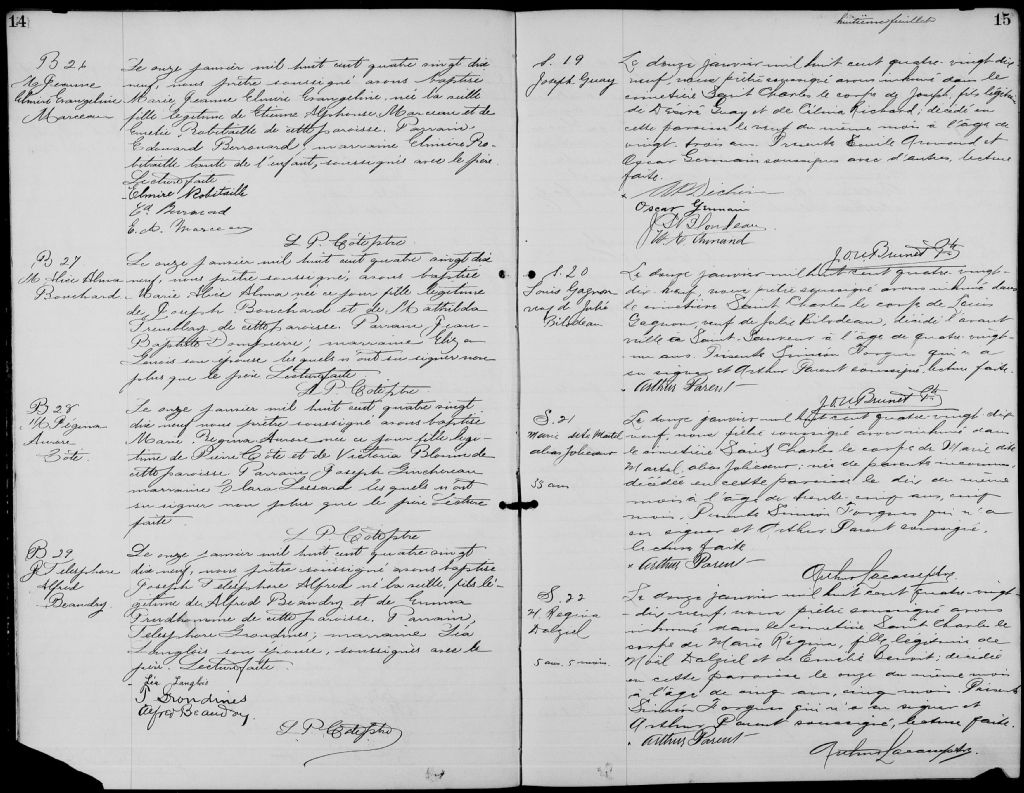 14
B 26
Mie Jeanne
Elmire Evangeline
Marceau
Le onze janvier mil huit cent quatre vingt dix
neuf, nous prêtre soussigné avons baptisé
Marie Jeanne Elmire Evangeline, née la veille
fille legitime de Etienne Alphonse Marceau et de
Emelie Robitaille de cette paroisse. Parrain
Edouard Bernard, marraine Elmire Ro-
bitaille tante de l'enfant, soussignés avec le père.
Lecture faite
Elmire Robitaille
Ed Bernard
E. A. Marceau
L P. Côté ptre
B 27
M Alice Alma
Bouchard
Le onze janvier mil huit cent quatre vingt dix
neuf, nous prêtre soussigné, avons baptisé
Marie Alice Alma née ce jour fille legitime
de Joseph Bouchard et de Mathilda
Tremblay de cette paroisse. Parrain Jean-
Baptiste Dompierre; marraine
son epouse les quels n'ont su signer non
plus que le père. Lecture faite
L P. Côté ptre
B 28
M Regina
Aurore
Côté
Le onze janvier mil huit cent quatre vingt
dix neuf nous prêtre soussigné avons baptisé
Marie Regina Aurore née ce jour fille legi-
time de Pierre Côté et de Victoria Blondeau
cette paroisse. Parrain Joseph
marraine Clara Lessard les quels n'ont
su signer non plus que le père Lecture
faite
L P. Côté ptre
B 29
J Telesphore
Alfred
Beaudry
Le onze janvier mil huit cent quatre vingt
dix neuf, nous prêtre soussigné avons baptisé
Joseph Telesphore Alfred né la veille, fils lé-
gitime de Alfred Beaudry et de Emma
Prudhomme de cette paroisse. Parrain,
Telesphore Grondines; marraine Léa
Langlois son epouse, soussignés avec le
père. Lecture faite
Léa Langlois
T Grondines
Alfred Beaudry
L. P. Côté ptre
huitième feuillet
15
S. 19
Joseph Guay
Le douze janvier mil huit cent quatre-vingt dix
neuf, nous prêtre soussigné avons inhumé dans le
cimetière Saint Charles le corps de Joseph, fils légitime
de Désiré Guay et de Célina Richard, décédé en
cette paroisse le neuf du même mois à l'âge de
vingt-trois ans. Présents Emile Armand et
Oscar Germain soussignés avec d'autres, lecture
faite.
Oscar Germain
Blondeau
Armand
J O U Brunet Ptr
S. 20
Louis Gagnon
veuf de Julie
Bilodeau
Le douze janvier mil huit cent quatre-vingt-
dix-neuf, nous prêtre soussigné avons inhumé dans
le cimetière Saint Charles le corps de Louis
Gagnon, veuf de Julie Bilodeau, décédé l'avant
veille à Saint Sauveur à l'âge de quatre-vingt-
un ans. Présents Siméon Forgues qui n'a
su signer et Arthur Parent soussigné, lecture faite.
Arthur Parent
J O U Brunet Ptr
S. 21
Marie dite Martel
alias Jolicoeur
35 ans
Le douze janvier mil huit cent quatre vingt dix
neuf, nous prêtre soussigné avons inhumé dans
le cimetière Saint Charles le corps de Marie dite
Martel alias Jolicoeur; née de parents inconnus,
décédée en cette paroisse le dix du même
mois à l'âge de trente-cinq ans, cinq
mois. Présents Siméon Forgues qui n'a
su signer et Arthur Parent soussigné,
lecture faite
Arthur Parent
Arthur Lacasse ptre
S. 22
M Régina
Dalziel
5 ans, 5 mois.
Le douze janvier mil huit cent quatre-vingt
dix-neuf, nous prêtre soussigné avons
inhumé dans le cimetière Saint Charles le
corps de Marie Régina, fille légitime de
Noël Dalziel et de Emélie Benoit; décédée
en cette paroisse le onze du même mois
à l'âge de cinq ans, cinq mois. Présents
Siméon Forgues qui n'a su signer et
Arthur Parent soussigné, lecture faite.
Arthur Parent
Arthur Lacasse ptre